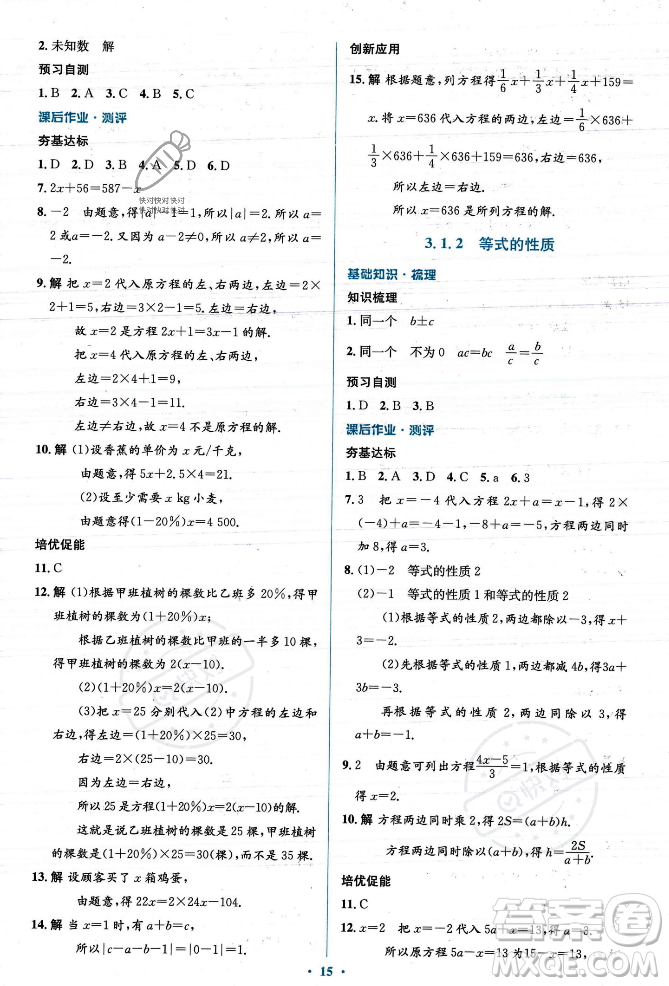 2. 未知数 解
预习自测
1. B 2. A 3. C 4. B 5. C
课后作业·测评
夯基达标
1. D 2. D 3. A 4. A 5. B 6. D
7. 2x+56=587-x
8. -2 由题意,得|a|-1=1,所以|a|=2.所以
a=±2.又因为a-2≠0,所以a≠2.所以a=
-2.
9. 解 把x=2代入原方程的左、右两边,左边=2×
2+1=5,右边=3×2-1=5,左边=右边,
故x=2是方程2x+1=3x-1的解.
把x=4代入原方程的左、右两边,
左边=2×4+1=9,
右边=3×4-1=11.
左边≠右边,故x=4不是原方程的解.
10. 解 (1)设香蕉的单价为x元/千克,
由题意,得5x+2.5×4=21.
(2)设至少需要x kg小麦,
由题意,得(1-20%)x=4 500.
培优促能
11. C
12. 解 (1)根据甲班植树的棵数比乙班多20%,得甲
班植树的棵数为(1+20%)x;
根据乙班植树的棵数比甲班的一半多10棵,
得甲班植树的棵数为2(x-10).
(2)(1+20%)x=2(x-10).
(3)把x=25分别代入(2)中方程的左边和右
边,得左边=(1+20%)×25=30,
右边=2×(25-10)=30.
因为左边=右边,
所以25是方程(1+20%)x=2(x-10)的解.
这就是说乙班植树的棵数是25棵,甲班植树
的棵数是(1+20%)×25=30(棵).
13. 解 设顾客买了x箱鸡蛋,
由题意,得12x=2×14x-96.
14. 解 当x=1时,a+b+1=c,即c-a-b=1,
所以|c-a-b-1|=|1-1|=|0|=0.
创新应用
15. 解 根据题意,列方程得1/6x+1/3x+1/4x+159=
x.将x=636代入方程的两边,得1/6×636+
1/3×636+1/4×636+159=636,
所以左边=右边.
所以x=636是所列方程的解.
3.1.2 等式的性质
基础知识·梳理
知识梳理
1. 同一个 b±c
2. 同一个 不为0 ac=bc a/c=b/c
预习自测
1. D 2. B 3. B
课后作业·测评
夯基达标
1. B 2. A 3. D 4. C 5. a 6. 3
7. 3 把x=-4代入方程2x+a=-5,得2×
(-4)+a=-5,即-8+a=-5,方程两边同时
加8,得a=3.
8. (1)-2 等式的性质2
(2)-1 等式的性质1和等式的性质2
(1)根据等式的性质2,两边都除以-3,得x=
-2.
(2)先根据等式的性质2,两边都减2,得-3x=3.
再根据等式的性质2,两边同时除以-3,得x=
-1.
9. 2 由题意可列出方程(4x-5)/3=1,根据等式的性质
得x=2.
10. 解 方程两边同时乘2,得2S=(a+b)h.
方程两边同时除以(a+b),得h=2S/(a+b).
培优促能
11. C
12. x=2 把x=-2代入5a+x=13,得a=3.
所以原方程5a-x=13为15-x=13,
15